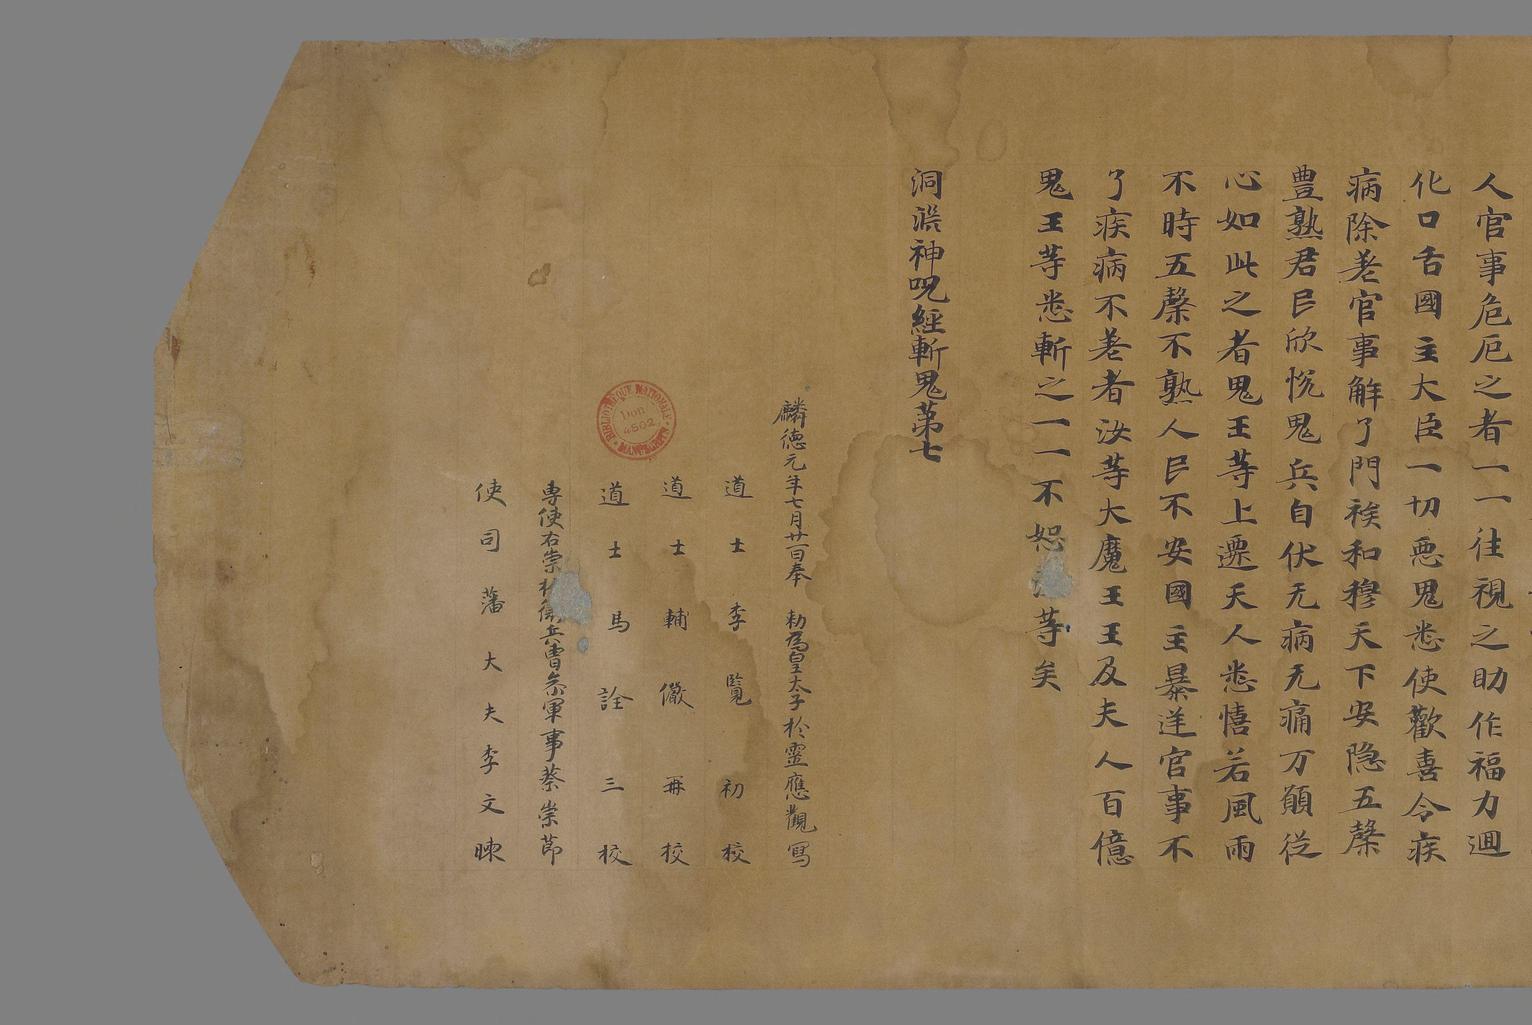 人官事危厄之者一一往視之助作福力迴
化口舌國主大臣一切惡鬼悉使歡喜令疾
病除差官事解了門族和穆天下安隱五槃
豊熟君臣欣悦鬼兵自伏无病无痛万願從
心如此之者鬼王等上遷天人悉憘若風雨
不時五槃不熟人民不安國主暴逆官事不
了疾病不差者汝等大魔王王及夫人百億
鬼王等悉斬之一一不恕 等矣
洞淵神呪經斬鬼苐七
麟德元年七月廿一日奉 勅為皇太子於靈應觀寫
道士李覽初校
道士輔儼再校
道士馬詮三校
專使右崇 衛兵曹叅軍事蔡崇節
使司藩大夫李文暕
BIBLIOTHÈQUE NATIONALE MANUSCRITS
Don
4502